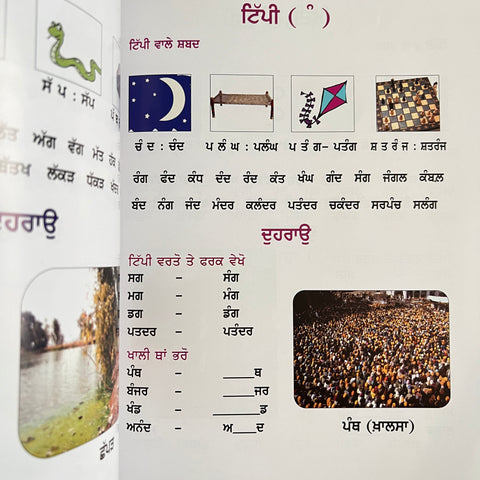 ਸੱ ਪ : ਸੱਪ
ਅੱਗ ਵੱਗ ਮੱਤ
ਲੱਕੜ ਧੱਕੜ
ਛੱਪੜ
ਟਿੱਪੀ ( ੰ )
ਟਿੱਪੀ ਵਾਲੇ ਸ਼ਬਦ
ਚੰ ਦ : ਚੰਦ
ਪ ਲੰ ਘ : ਪਲੰਘ
ਪ ਤੰ ਗ – ਪਤੰਗ
ਸ਼ ਤ ਰੰ ਜ : ਸ਼ਤਰੰਜ
ਰੰਗ ਫੰਦ ਕੰਧ ਦੰਦ ਰੰਦ ਕੰਤ ਖੰਘ ਗੰਦ ਸੰਗ ਜੰਗਲ ਕੰਬਲ਼
ਬੰਦ ਨੰਗ ਜੰਦ ਮੰਦਰ ਕਲੰਦਰ ਪਤੰਦਰ ਚਕੰਦਰ ਸਰਪੰਚ ਸਲੰਗ
ਦੁਹਰਾਉ
ਟਿੱਪੀ ਵਰਤੋ ਤੇ ਫਰਕ ਵੇਖੋ
ਸਗ – ਸੰਗ
ਮਗ – ਮੰਗ
ਡਗ – ਡੰਗ
ਪਤਦਰ – ਪਤੰਦਰ
ਖਾਲੀ ਥਾਂ ਭਰੋ
ਪੰਥ – ____ਥ
ਬੰਜਰ – ____ਜਰ
ਖੰਡ – ____ਡ
ਅਨੰਦ – ਅ____ਦ
ਪੰਥ (ਖ਼ਾਲਸਾ)